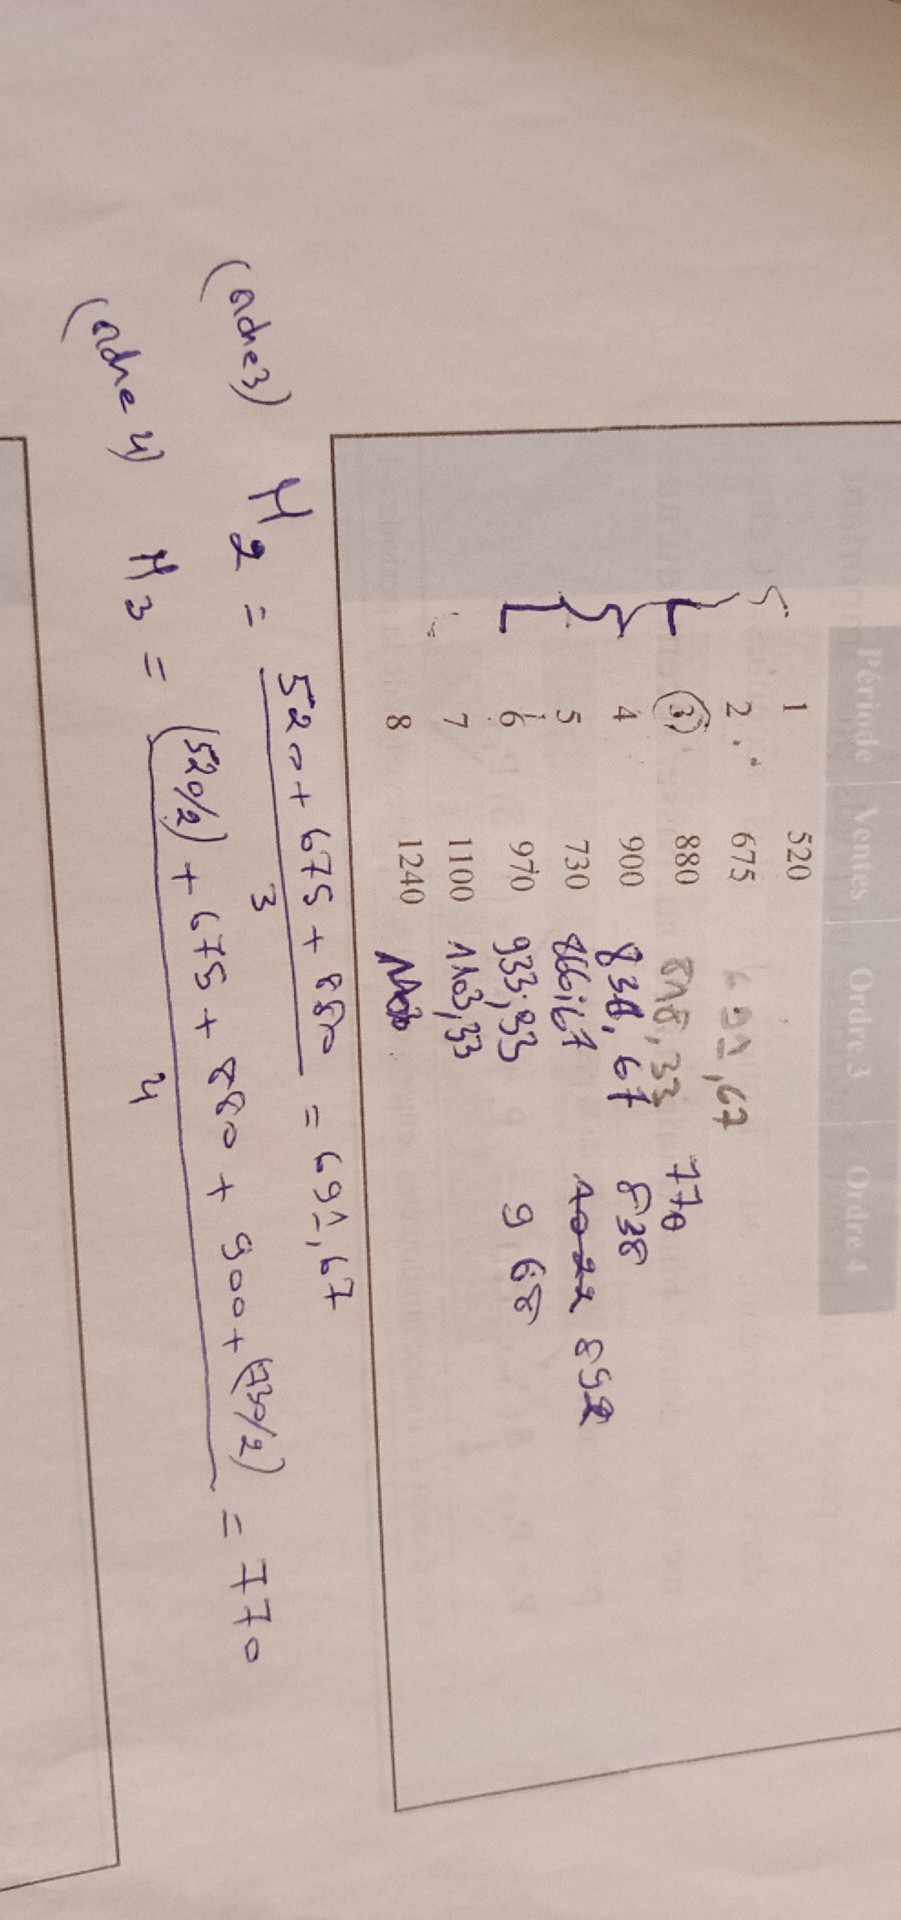 Période Ventes Ordre 3 Ordre 4
1 520
2 675 691,67
3 880 818,33 770
4 900 836,67 838
5 730 866,67 1022 892
6 970 933,33 968
7 1100 1103,33
8 1240
(ordre 3) M2 = 520 + 675 + 880 / 3 = 691,67
(ordre 4) M3 = (520/2) + 675 + 880 + 900 + (730/2) / 4 = 770